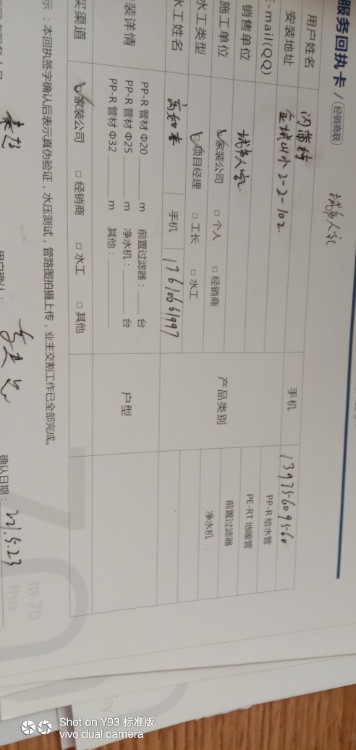 服务回执卡/经销商联
城市人家
用户姓名
手机 13975609560
安装地址 金域山水2-2-102
PP-R 给水管
E-mail(QQ)
PE-RT 地暖管
销售单位 城市人家
产品类别
前置过滤器
施工单位 家装公司 □ 个人 □ 经销商
净水机
水工类型 项目经理 □ 工长 □ 水工
水工姓名 手机 17610661997
装详情
PP-R 管材 Φ20 m 前置过滤器: 台
PP-R 管材 Φ25 m 净水机: 台
PP-R 管材 Φ32 m 其他:
户型
买渠道 家装公司 □ 经销商 □ 水工 □ 其他
示:本回执签字确认后表示真伪验证,水压测试,管路图拍摄上传,业主交割工作已全部完成。
确认日期: 221.5.23
In 70
Shot on Y93 标准版
vivo dual camera